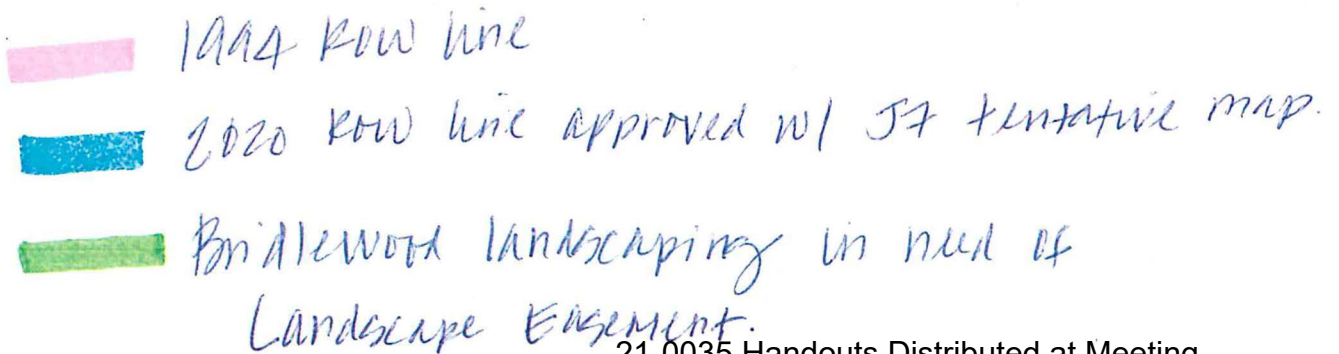 1994 ROW line
2020 ROW line approved w/ J7 tentative map.
Bridlewood landscaping in need of
Landscape Easement.
21-0035 Handouts Distributed at Meeting